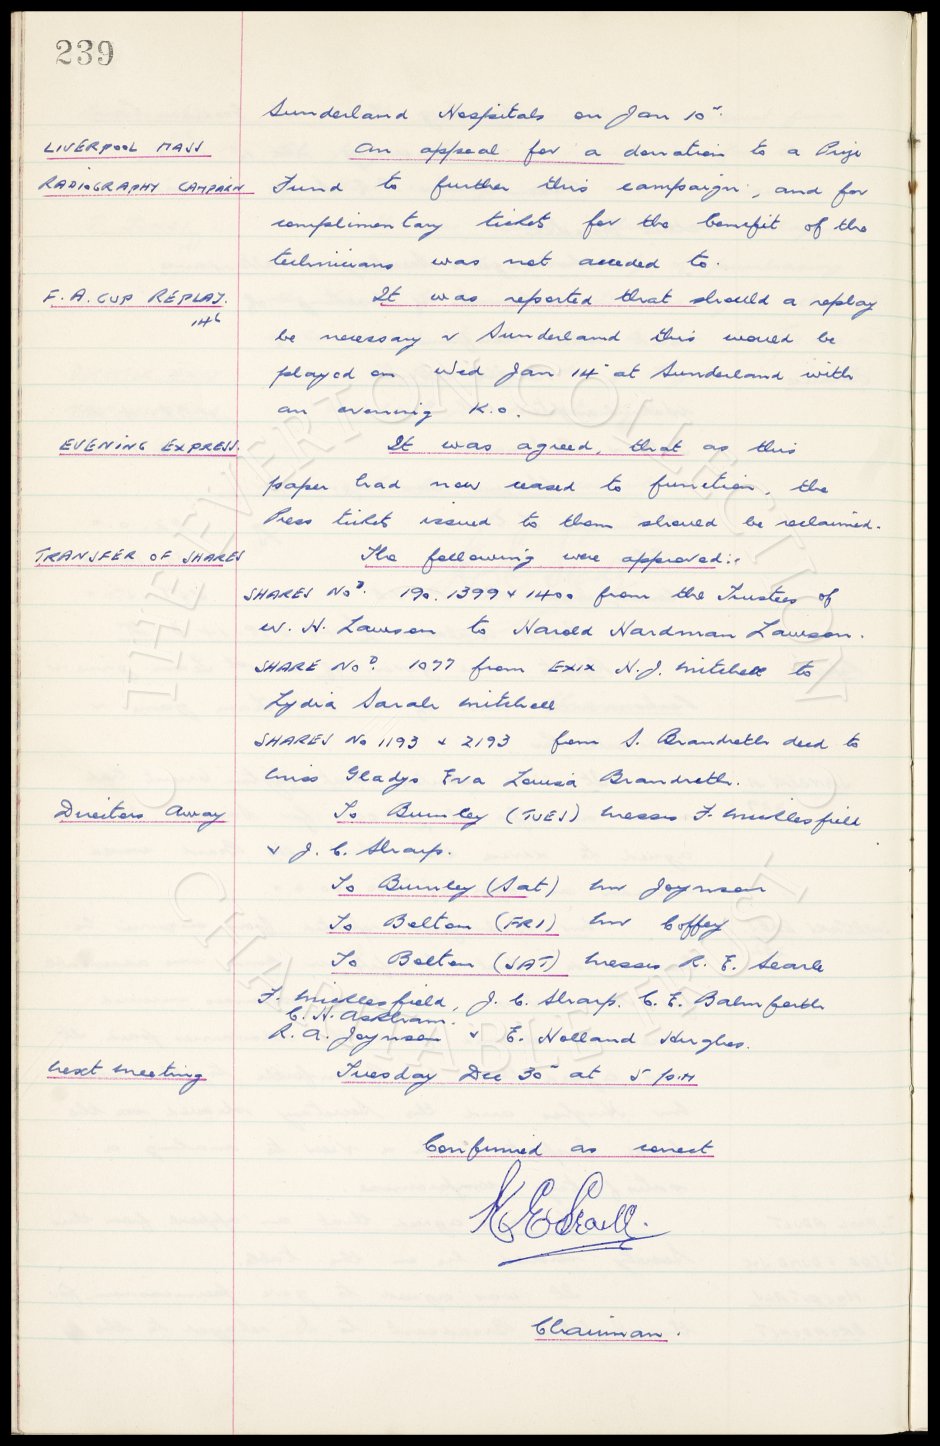 239
Sunderland Hospitals on Jan 10".
LIVERPOOL MASS An appeal for a donation to a Prize
RADIOGRAPHY CAMPAIGN Fund to further this campaign, and for
complimentary tickets for the benefit of the
technicians was not acceded to.
F.A. CUP REPLAY. It was reported that should a replay
146
be necessary v Sunderland this would be
played on Wed Jan 14" at Sunderland with
an evening K.O.
EVENING EXPRESS. It was agreed, that as this
paper had now ceased to function, the
Press tickets issued to them should be reclaimed.
TRANSFER OF SHARES The following were approved:-
SHARES NoD. 190. 1399 & 1400 from the Trustees of
W. H. Lawson to Harold Hardman Lawson.
SHARE NoD. 1077 from EXIX N.J. Mitchell to
Lydia Sarah Mitchell
SHARES No 1193 & 2193 from S. Brandreth decd to
Miss Gladys Eva Louisa Brandreth.
Directors Away To Burnley (TUES) Messrs F. Micklesfield
& J. C. Sharp.
To Burnley (Sat) Mr Joynson
To Bolton (FRI) Mr Coffey
To Bolton (SAT) Messrs R. E. Searle
F. Micklesfield, J. C. Sharp. C. E. Balmforth
C. H. Askham.
R. A. Joynson & E. Holland Hughes.
Next Meeting Tuesday Dec 30" at 5 p.m
Confirmed as correct
Chairman.
THE EVERTON COLLECTION
CHARITABLE TRUST